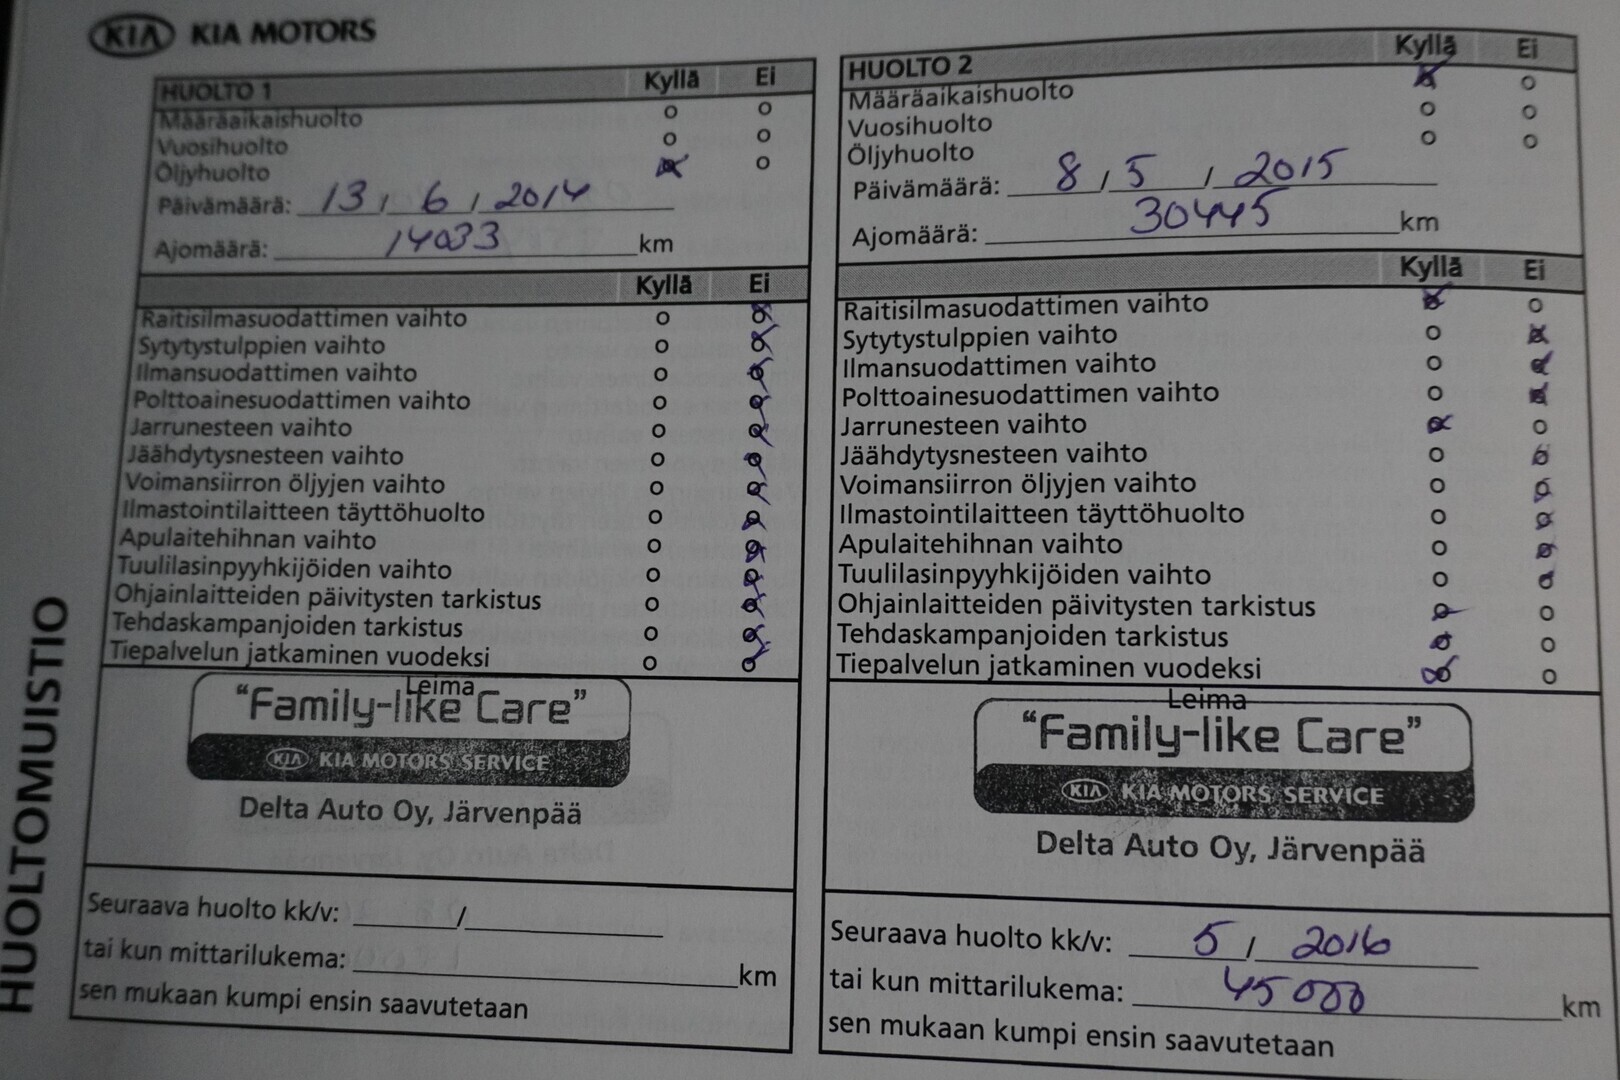 KIA KIA MOTORS
HUOLTOMUISTIO
HUOLTO 1 Kyllä Ei
Määräaikaishuolto
Vuosihuolto
Öljyhuolto
Päivämäärä: 13 / 6 / 2014
Ajomäärä: 14033 km
Kyllä Ei
Raitisilmasuodattimen vaihto
Sytytystulppien vaihto
Ilmansuodattimen vaihto
Polttoainesuodattimen vaihto
Jarrunesteen vaihto
Jäähdytysnesteen vaihto
Voimansiirron öljyjen vaihto
Ilmastointilaitteen täyttöhuolto
Apulaitehihnan vaihto
Tuulilasinpyyhkijöiden vaihto
Ohjainlaitteiden päivitysten tarkistus
Tehdaskampanjoiden tarkistus
Tiepalvelun jatkaminen vuodeksi
Leima
"Family-like Care"
KIA KIA MOTORS SERVICE
Delta Auto Oy, Järvenpää
Seuraava huolto kk/v: /
tai kun mittarilukema: km
sen mukaan kumpi ensin saavutetaan
HUOLTO 2 Kyllä Ei
Määräaikaishuolto
Vuosihuolto
Öljyhuolto
Päivämäärä: 8 / 5 / 2015
Ajomäärä: 30445 km
Kyllä Ei
Raitisilmasuodattimen vaihto
Sytytystulppien vaihto
Ilmansuodattimen vaihto
Polttoainesuodattimen vaihto
Jarrunesteen vaihto
Jäähdytysnesteen vaihto
Voimansiirron öljyjen vaihto
Ilmastointilaitteen täyttöhuolto
Apulaitehihnan vaihto
Tuulilasinpyyhkijöiden vaihto
Ohjainlaitteiden päivitysten tarkistus
Tehdaskampanjoiden tarkistus
Tiepalvelun jatkaminen vuodeksi
Leima
"Family-like Care"
KIA KIA MOTORS SERVICE
Delta Auto Oy, Järvenpää
Seuraava huolto kk/v: 5 / 2016
tai kun mittarilukema: 45 000 km
sen mukaan kumpi ensin saavutetaan